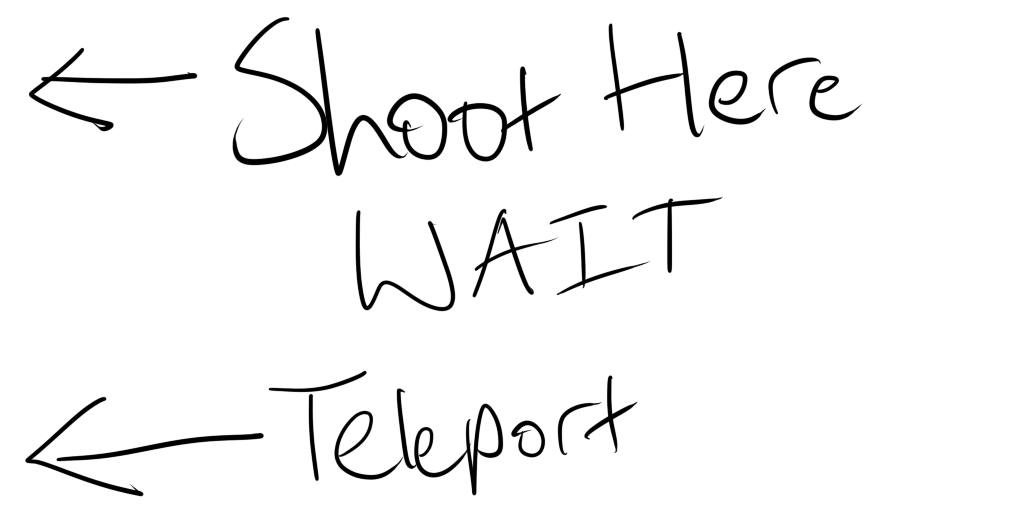 Shoot Here
WAIT
Teleport